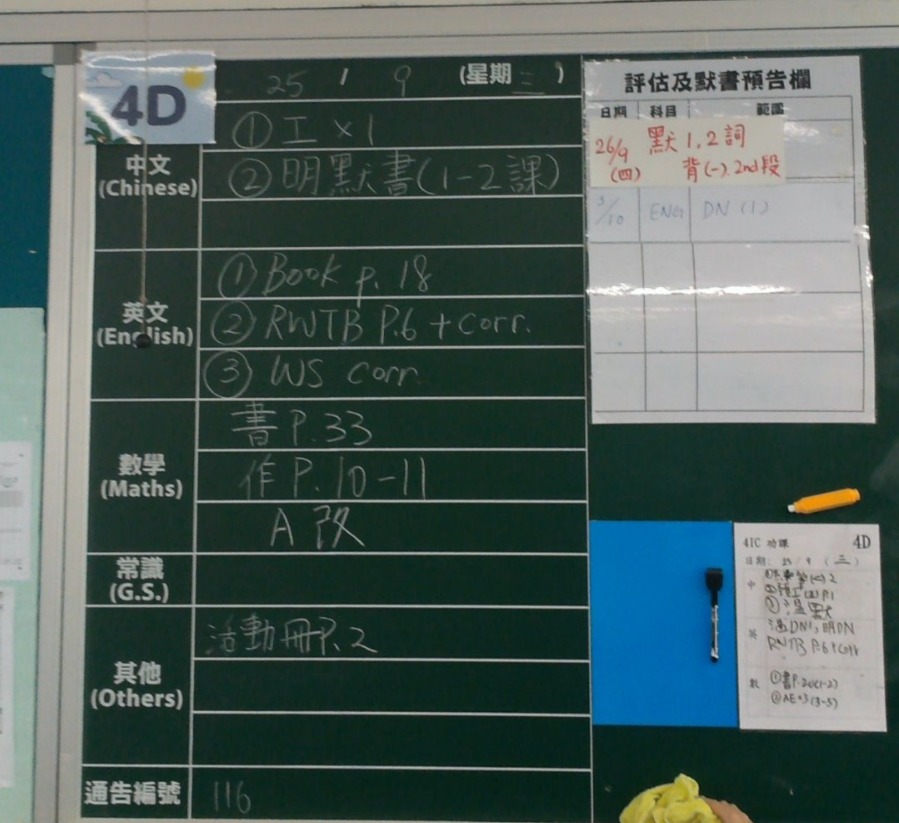 4D
25 / 9 (星期三)
中文
(Chinese)
① 工 x 1
② 明默書(1-2課)
英文
(English)
① Book p. 18
② RWTB P.6 + corr.
③ WS corr.
數學
(Maths)
書 P.33
作 P.10-11
A 改
常識
(G.S.)
其他
(Others)
活動冊P.2
通告編號
116
評估及默書預告欄
日期 科目 範圍
26/9 默 1, 2 詞
(四) 背(一). 2nd段
3/10 ENG DN (1)
4IC 功課 4D
日期: 25 / 9 (三)
中
英
溫DN1, 明DN
RWTB P.6+corr
數
①書P.20(1-2)